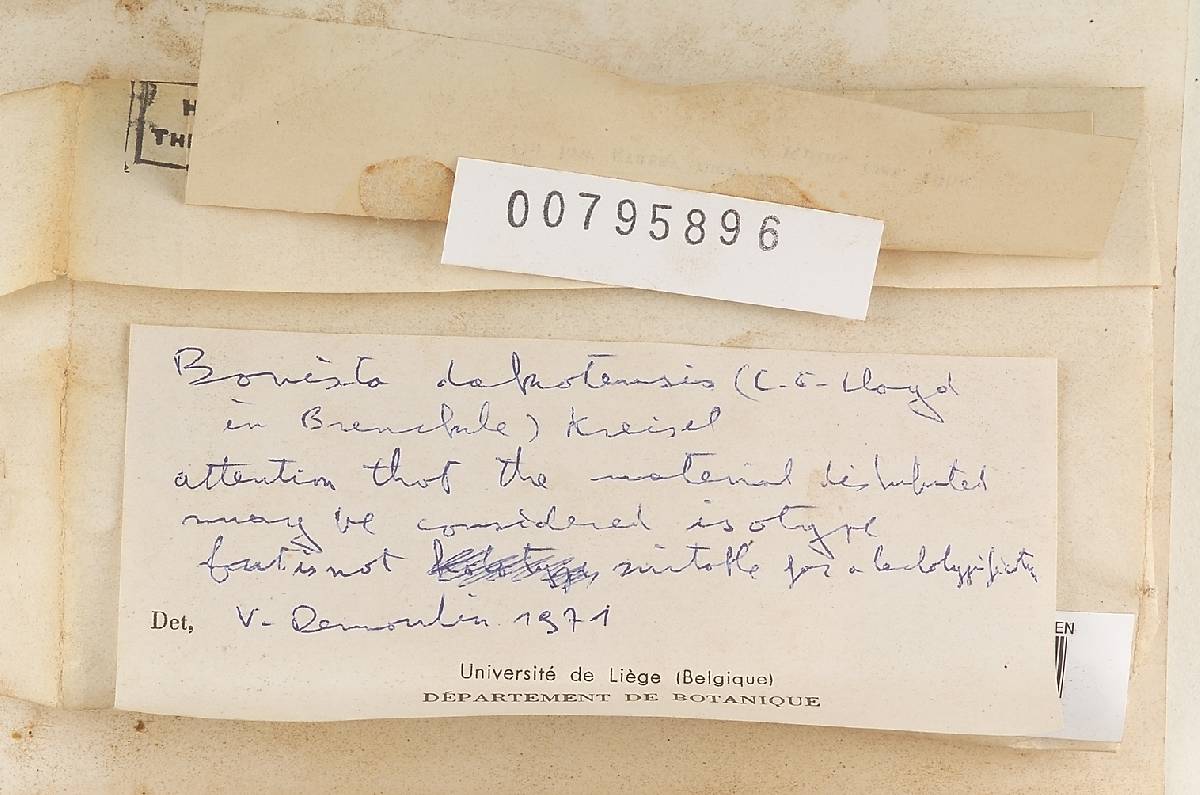 H
THE
00795896
Bovista dakotensis (C.G. Lloyd
in Brenckle) Kreisel
attention that the material distributed
may be considered isotype
but is not suitable for a lectotypification
Det, V. Demoulin 1971
Université de Liège (Belgique)
DÉPARTEMENT DE BOTANIQUE
EN